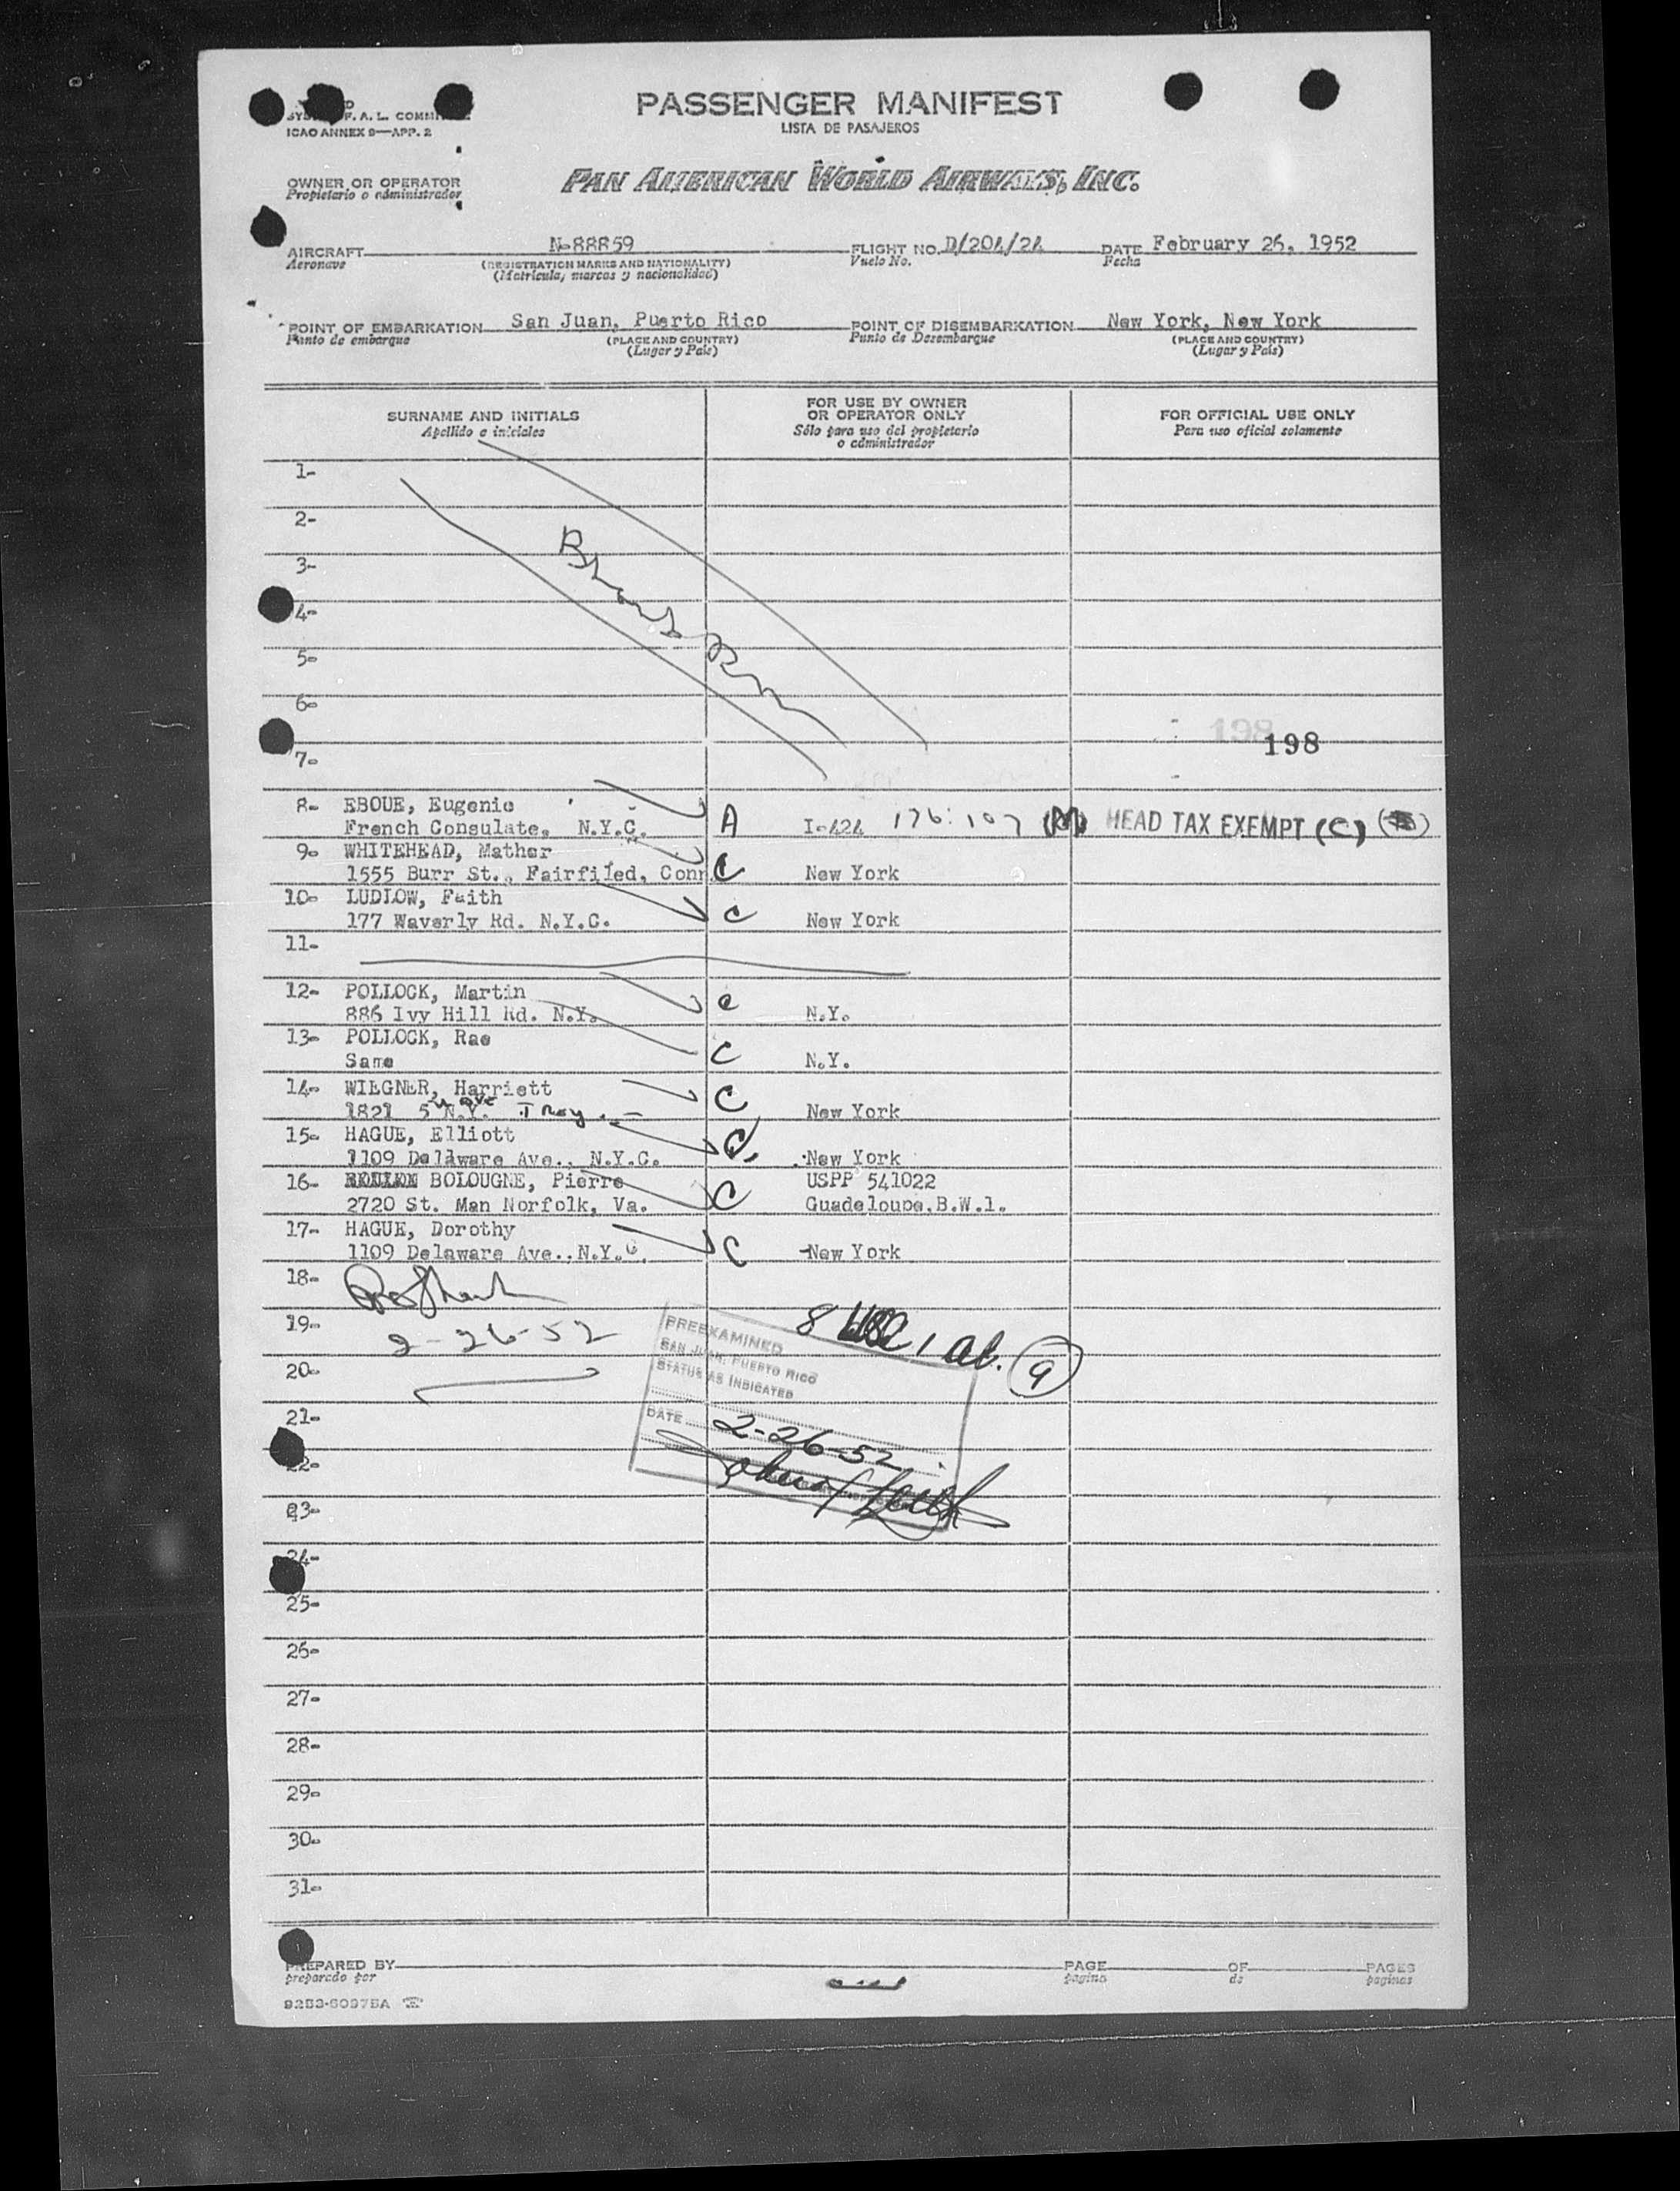 F. A. L.
ICAO ANNEX 9—APP. 2
PASSENGER MANIFEST
LISTA DE PASAJEROS
OWNER OR OPERATOR
Propietario o administrador
PAN AMERICAN WORLD AIRWAYS, INC.
AIRCRAFT N-88859 FLIGHT NO. D/204/24 DATE February 26, 1952
Aeronave (REGISTRATION MARKS AND NATIONALITY) Vuelo No. Fecha
(Matrícula, marcas y nacionalidad)
POINT OF EMBARKATION San Juan, Puerto Rico POINT OF DISEMBARKATION New York, New York
Punto de embarque (PLACE AND COUNTRY) Punto de Desembarque (PLACE AND COUNTRY)
(Lugar y País) (Lugar y País)
SURNAME AND INITIALS
Apellido e iniciales
FOR USE BY OWNER
OR OPERATOR ONLY
Sólo para uso del propietario
o administrador
FOR OFFICIAL USE ONLY
Para uso oficial solamente
1-
2-
3-
4-
5-
6-
198
198
7-
8- EBOUE, Eugenie
French Consulate, N.Y.C. A I-424 176:107 (M) HEAD TAX EXEMPT (C)
9- WHITEHEAD, Mather
1555 Burr St., Fairfiled, Conn. C New York
10- LUDLOW, Faith
177 Waverly Rd. N.Y.C. C New York
11-
12- POLLOCK, Martin
886 Ivy Hill Rd. N.Y. C N.Y.
13- POLLOCK, Rae
Same C N.Y.
14- WIEGNER, Harriett
1821 5th Ave N.Y. Troy. C New York
15- HAGUE, Elliott
1109 Delaware Ave., N.Y.C. C New York
16- BOLOUGNE, Pierre USPP 541022
2720 St. Man Norfolk, Va. C Guadeloupe.B.W.1.
17- HAGUE, Dorothy
1109 Delaware Ave., N.Y.C. C -New York
18-
19- 2-26-52 8 USC, 1 al. 9
PREEXAMINED
SAN JUAN, PUERTO RICO
STATUS AS INDICATED
20-
21-
DATE 2-26-52
22-
23-
24-
25-
26-
27-
28-
29-
30-
31-
PREPARED BY PAGE OF PAGES
preparado por pagina de paginas
9253-5097BA